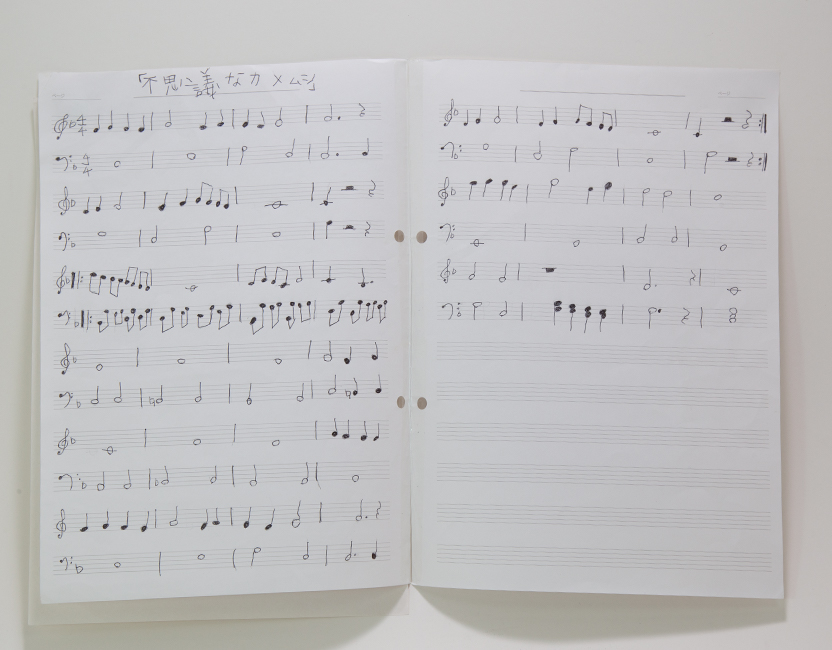 「不思議なカメムシ」